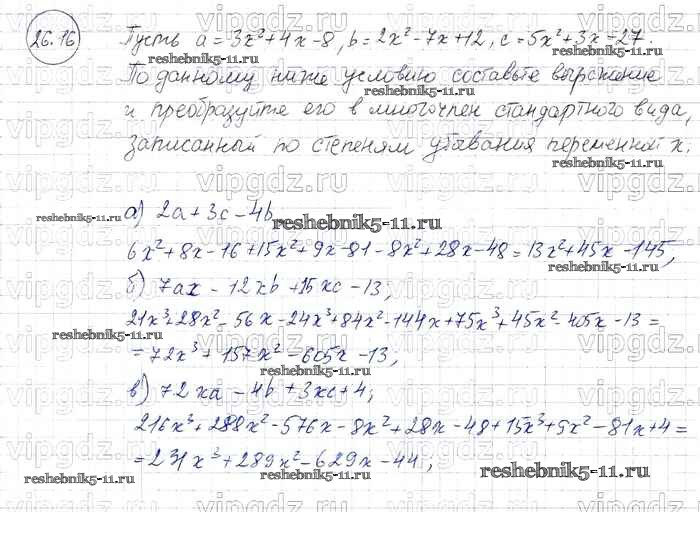 26.16 Пусть a = 3x² + 4x - 8, b = 2x² - 7x + 12, c = 5x² + 3x - 27.
По данному ниже условию составьте выражение
и преобразуйте его в многочлен стандартного вида,
записанный по степеням убывания переменной x.
а) 2a + 3c - 4b
6x² + 8x - 16 + 15x² + 9x - 81 - 8x² + 28x - 48 = 13x² + 45x - 145,
б) 7ax - 12xb + 15xc - 13,
21x³ + 28x² - 56x - 24x³ + 84x² - 144x + 75x³ + 45x² - 405x - 13 =
= 72x³ + 157x² - 605x - 13,
в) 72xa - 4b + 3xc + 4;
216x³ + 288x² - 576x - 8x² + 28x - 48 + 15x³ + 9x² - 81x + 4 =
= 231x³ + 289x² - 629x - 44,
vipgdz.ru
reshebnik5-11.ru